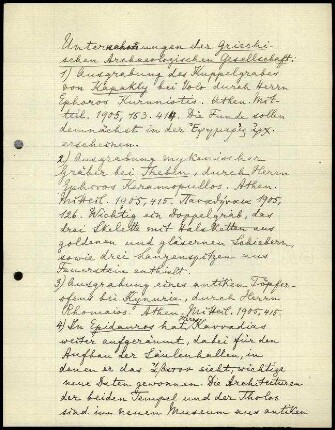 Unternehmungen der Griechi-
schen Archaeologischen Gesellschaft.
1) Ausgrabung des Kuppelgrabes
von Kapakly bei Volo durch Herrn
Ephoros Kuruniotis. Athen. Mit-
teil. 1905, 153. 414. Die Funde sollen
demnächst in der Ἐφημερὶς ἀρχ.
erscheinen.
2) Ausgrabung mykenischer
Gräber bei Theben, durch Herrn
Ephoros Keramopullos. Athen.
Mitteil. 1905, 415. 1905,
126. Wichtig ein Doppelgrab, das
drei Skelette mit Halsketten aus
goldenen und gläsernen Schiebern,
sowie drei Lanzenspitzen aus
Feuerstein enthielt.
3) Ausgrabung eines antiken Töpfer-
ofens bei Kynuria, durch Herrn
Rhomaios. Athen. Mitteil. 1905, 415
4) In Epidauros hat Herr Kavvadias
weiter aufgeräumt, dabei für den
Aufbau der Säulenhallen, in
denen er das Ἄβατον sieht, wichtige
neue Daten gewonnen. Die Architekturen
der beiden Tempel und der Tholos
sind im neuen Museum aus antiken